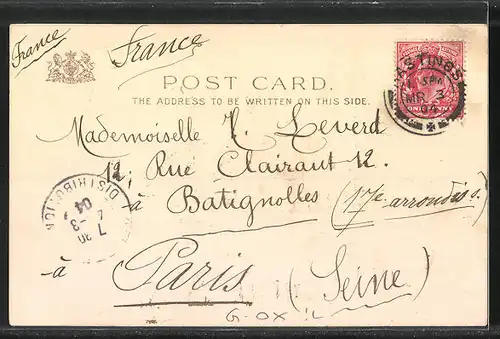 France
France
POST CARD.
THE ADDRESS TO BE WRITTEN ON THIS SIDE.
HASTINGS
MR 3
04
Mademoiselle Y. Leverd
12, Rue Clairaut 12.
à Batignolles (17e arrondis.)
DISTRIBUTION
7 30
4 -3
04
à Paris (Seine)
G-OX IL